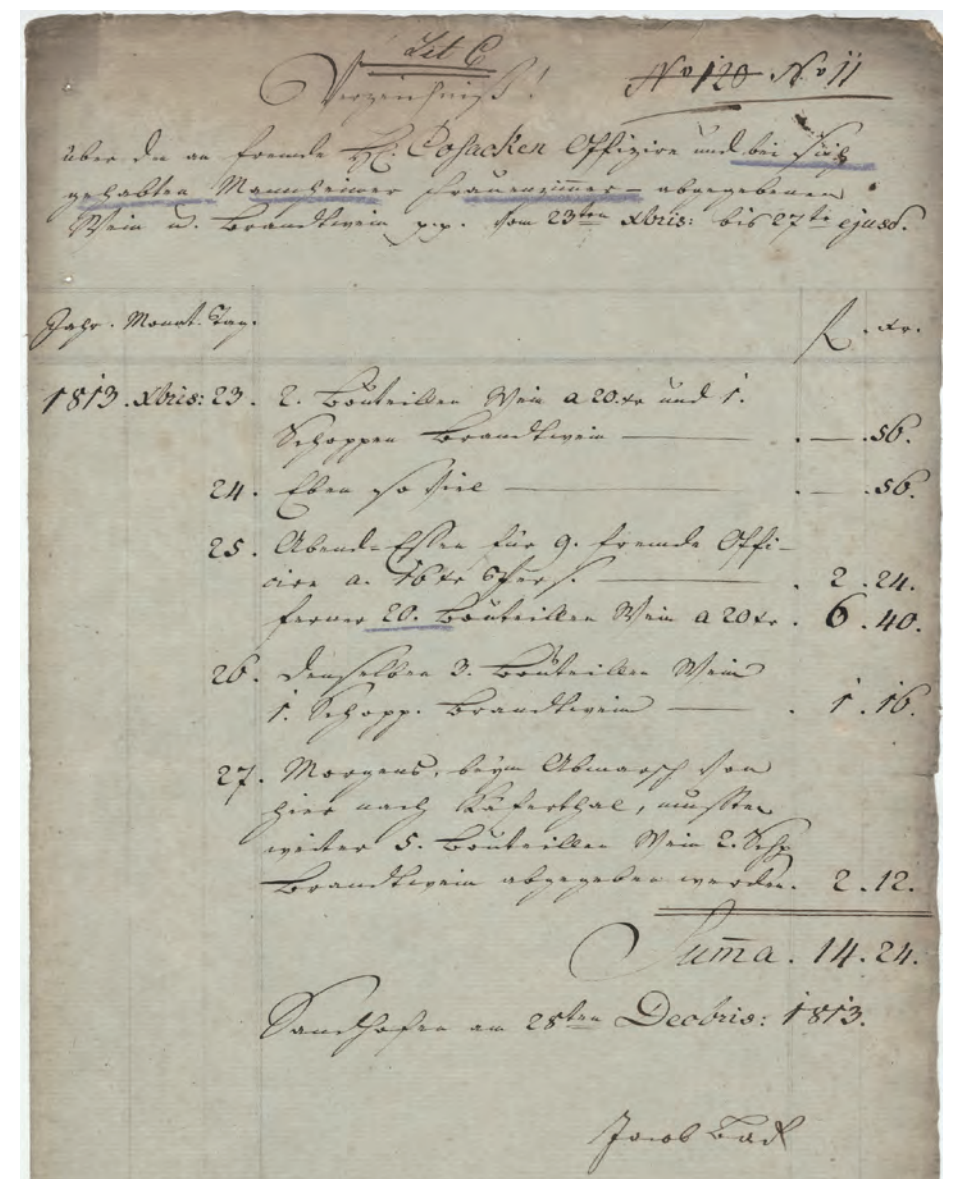 Lit C
Verzeichniß! No 120 No 11
über die an fremde H. Cosacken Offizire und bei sich
gehabten Mannheimer Frauenzimmer – abgegebenen
Wein u. Brandtwein p.p. vom 23ten Xbris: bis 27te ejusd.
Jahr. Monat. Tag. f. xr.
1813. Xbris: 23. 2. Bouteillen Wein a 20. xr und 1.
Schoppen Brandtwein — . — . 56.
24. Eben so viel — . — . 56.
25. Abend-Essen für 9. fremde Offi-
cire a. 16 xr — . 2 . 24.
ferner 20. Bouteillen Wein a 20 xr. 6 . 40.
26. denselben 3. Bouteillen Wein
1. Schopp. Brandtwein — . 1 . 16.
27. Morgens, beym Abmarsch von
hier nach Käferthal, mussten
weiter 5. Bouteillen Wein 2. Schp
Brandtwein abgegeben werden. 2 . 12.
Suma . 14 . 24.
Sandhofen am 28ten Decbris: 1813.
Jacob